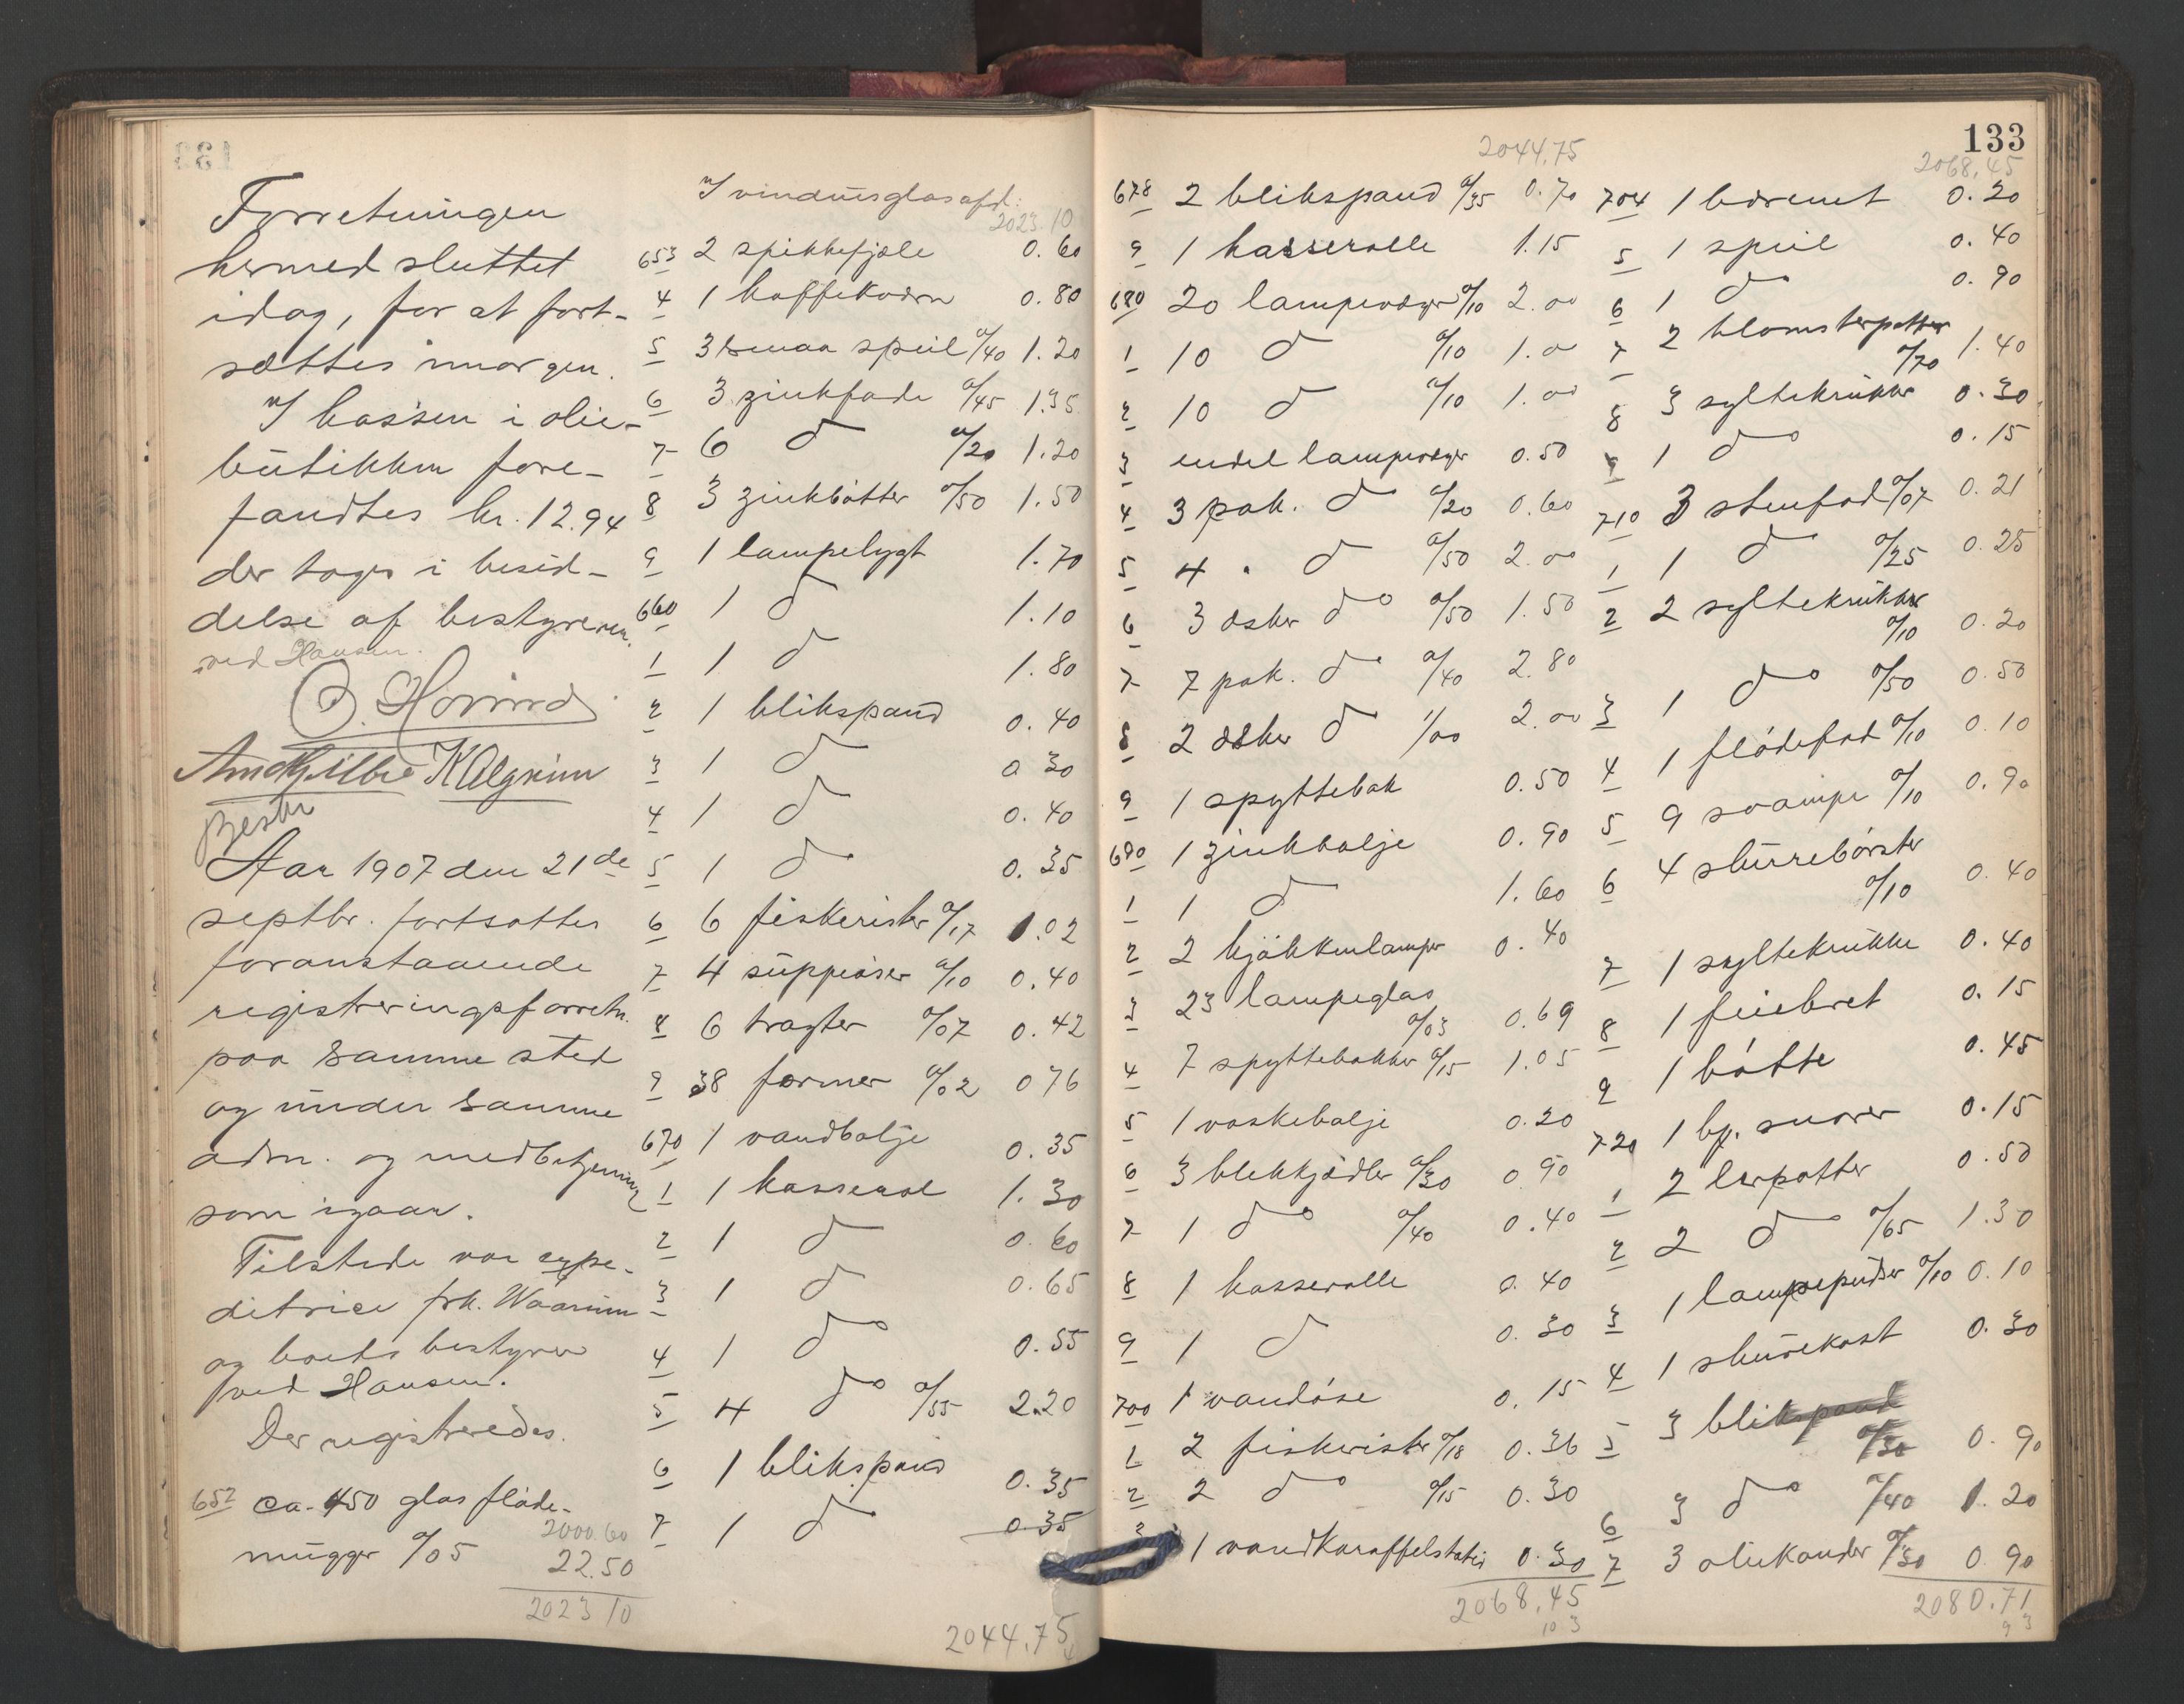 Forretningen
hermed sluttet
idag, for at fort-
sættes imorgen.
I kassen i olie-
butikken fore-
fandtes kr. 12.94
der tages i besid-
delse af bestyreren
ved Hansen.
KAlgrim
Bestr
Aar 1907 den 21de
septbr. fortsattes
foranstaaende
registreringsforretn.
paa samme sted
og under samme
adm. og medbetjening
som igaar.
Tilstede var expe-
ditrice frk. Waarum
og boets bestyrer
ved Hansen.
Der registreredes.
652 ca. 450 glas fløde-
2000.60
mugger a/05 22.50
2023 10
I vindusglasafd:
2023.10
653 2 spikkefjæle 0.60
4 1 kaffekværn 0.80
5 3 smaa speil a/40 1.20
6 3 zinkfade a/45 1.35
7 6 do a/20 1.20
8 3 zinkbøtter a/50 1.50
9 1 lampelygt 1.70
660 1 do 1.10
1 1 do 1.80
2 1 blikspand 0.40
3 1 do 0 30
4 1 do 0.40
5 1 do 0.35
6 6 fiskerister a/17 1.02
7 4 suppeøser a/10 0.40
8 6 tragter a/07 0.42
9 38 former a/02 0 76
670 1 vandbalje 0.35
1 1 kasserol 1.30
2 1 do 0.60
3 1 do 0.65
4 1 do 0.55
5 4 do a/55 2.20
6 1 blikspand 0.35
7 1 do 0.35
2044.75
133
2044.75
678 2 blikspand a/35 0.70
9 1 kasserolle 1.15
680 20 lampevæger a/10 2.00
1 10 do a/10 1.00
2 10 do a/10 1.00
3 endel lampevæger 0.50
4 3 pak. do a/20 0.60
5 4 " do a/50 2.00
6 3 æsker do a/50 1.50
7 7 pak. do a/40 2.80
8 2 æsker do 1/00 2.00
9 1 spyttebak 0.50
690 1 zinkbalje 0.90
1 1 do 1.60
2 2 kjøkkenlamper 0.40
3 23 lampeglas
a/03 0.69
4 7 spyttebakker a/15 1.05
5 1 vaskebalje 0.20
6 3 blekkjedler a/30 0 90
7 1 do a/40 0.40
8 1 kasserolle 0.40
9 1 do 0.30
700 1 vandøse 0.15
1 2 fiskerister a/18 0.36
2 2 do a/15 0.30
3 1 vandkaraffelstativ 0.30
2068,45
10 3
2068,45
704 1 bærenet 0.20
5 1 speil 0.40
6 1 do 0.90
7 2 blomsterpotter
a/70 1.40
8 3 syltekrukker 0.30
9 1 do 0.15
710 3 stenfad a/07 0.21
1 1 do a/25 0.25
2 2 syltekrukker
a/10 0.20
3 1 do a/50 0.50
4 1 flødefad a/10 0.10
5 9 svampe a/10 0.90
6 4 skurrebørster
a/10 0.40
7 1 syltekrukke 0.40
8 1 feiebret 0.15
9 1 bøtte 0.45
720 1 bg. snører 0.15
1 2 lerpotter 0.50
2 2 do a/65 1.30
3 1 lampepudser a/10 0.10
4 1 skurekost 0.30
5 3 blikspand
a/30 0.90
6 3 do a/40 1.20
7 3 oliekander a/30 0.90
2080.71
9 3